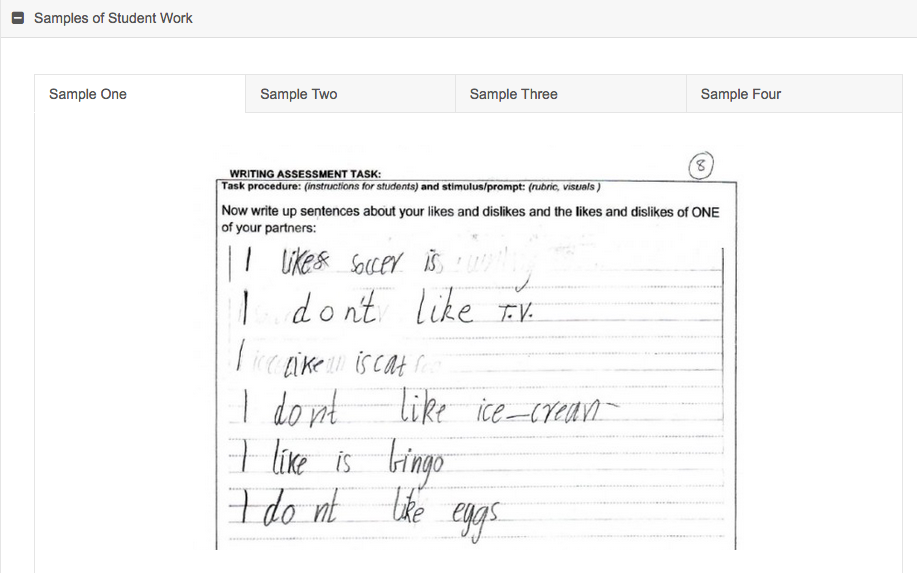 Samples of Student Work
Sample One
Sample Two
Sample Three
Sample Four
8
WRITING ASSESSMENT TASK:
Task procedure: (instructions for students) and stimulus/prompt: (rubric, visuals )
Now write up sentences about your likes and dislikes and the likes and dislikes of ONE
of your partners:
I likes soccer is
I don't like T.V.
I like is cat
I dont like ice-crean
I like is bingo
I do nt like eggs